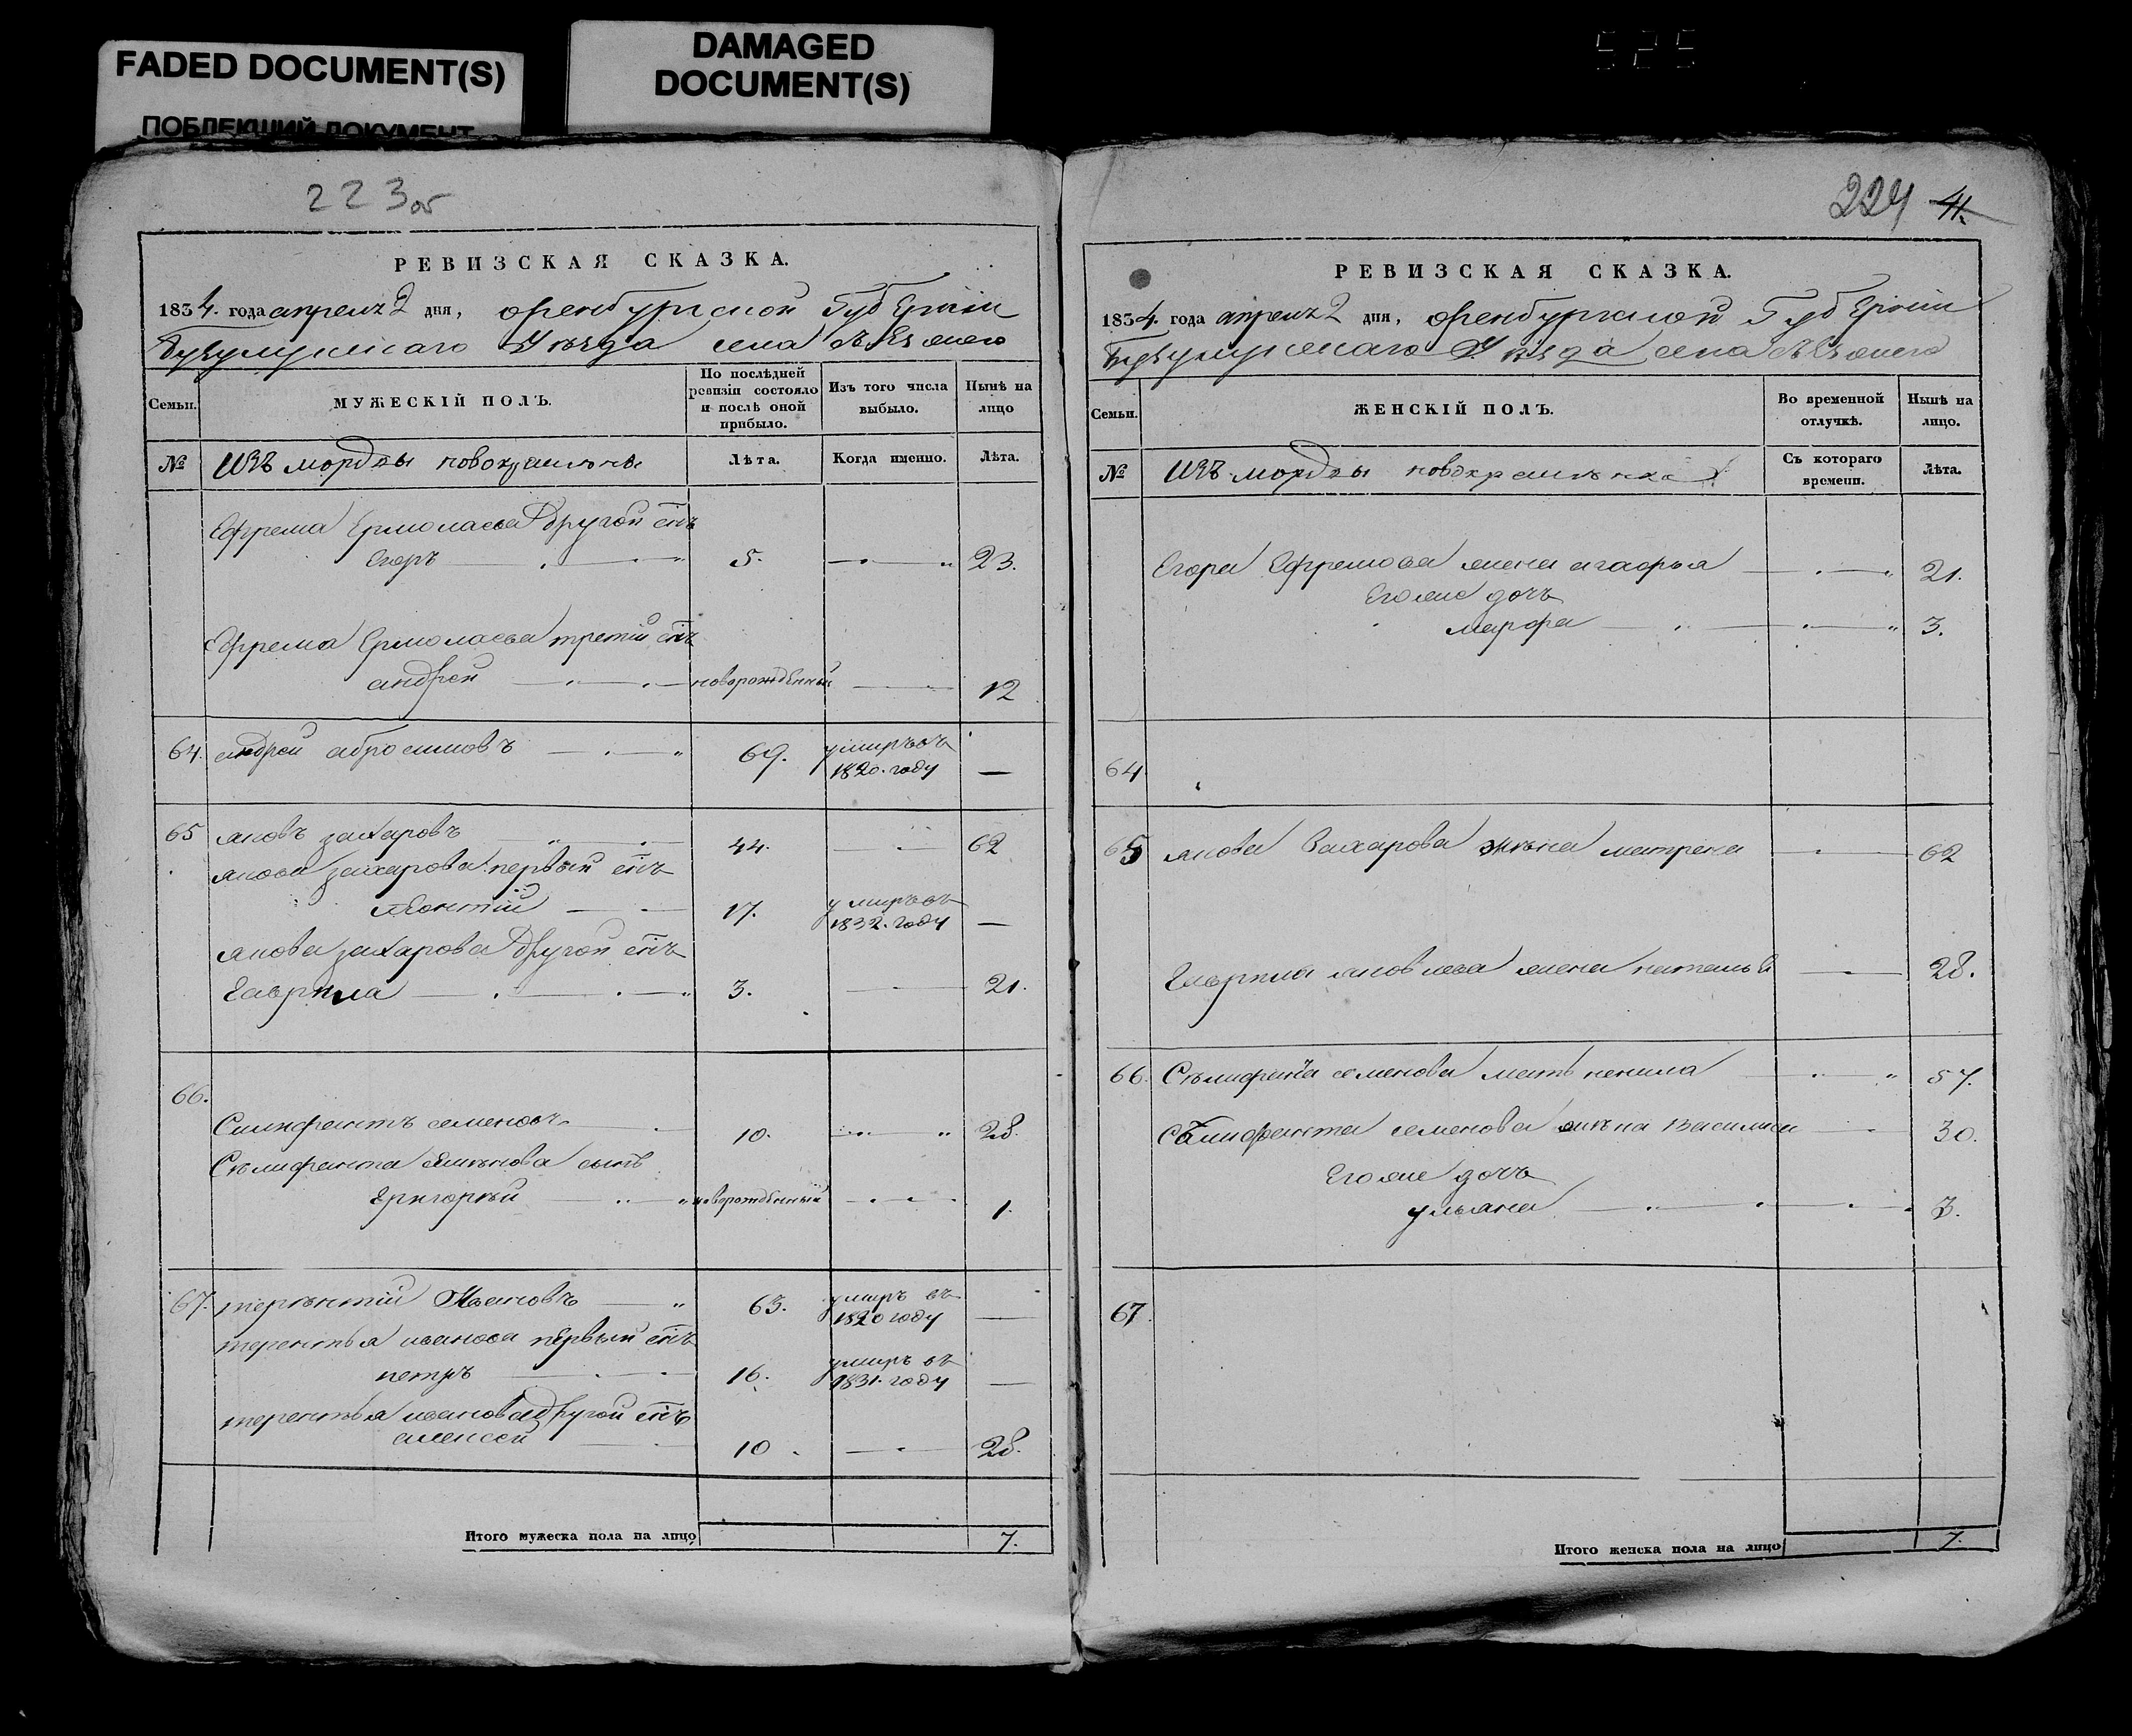 FADED DOCUMENT(S)
ПОБЛЕКШИЙ ДОКУМЕНТ
DAMAGED
DOCUMENT(S)
525
223 об
РЕВИЗСКАЯ СКАЗКА.
1834. года апреля 2 дня, Оренбургской Губернии
Бугульминскаго Уезда села
Семьи.
МУЖЕСКІЙ ПОЛЪ.
По послѣдней ревизіи состояло и послѣ оной прибыло.
Изъ того числа выбыло.
Нынѣ на лицо
№ Изъ мордвы новокрещены Лѣта. Когда именно. Лѣта.
Ефрема Ермолаева другой снъ
Егоръ 5. 23.
Ефрема Ермолаева третій снъ
андрей новорожденный 12
64. андрей абросимовъ 69. умиръ въ 1820. году —
65 яковъ захаровъ 44. 62
якова захарова первый снъ
леонтий 17. умиръ въ 1832. году —
якова захарова другой снъ
Гаврила 3. 21.
66.
Силифантъ семеновъ 10. 28.
Сѣлифанта сѣменова сынъ
Григорей новорожденный 1.
67. терентій Ивановъ 63. умиръ въ 1820 году —
терентья иванова первый снъ
петръ 16. умиръ въ 1831. году —
терентья иванова другой снъ
алексей 10. 28.
Итого мужеска пола на лицо 7.
224 41.
РЕВИЗСКАЯ СКАЗКА.
1834. года апреля 2 дня, Оренбургской Губернии
Бугульминскаго Уезда села
Семьи.
ЖЕНСКІЙ ПОЛЪ.
Во временной отлучкѣ.
Нынѣ на лицо.
№ Изъ мордвы новокрещенка Съ котораго времени. Лѣта.
Егора Ефремова жена агафья 21.
Его же дочь
марфа 3.
64
65 якова Захарова жѣна матрена 62
Гаврила яковлева жена наталья 28.
66. Сѣлифанта семенова мать ненила 57.
Сѣлифанта семенова жѣна василиса 30.
Его же дочь
ульяна 3.
67.
Итого женска пола на лицо 7.